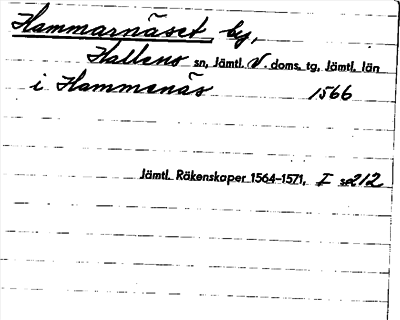 Hammarnäset by,
Hallens sn, Jämtl. V. doms. tg, Jämtl. län
i Hammenäs 1566
Jämtl. Räkenskaper 1564-1571, I s 212